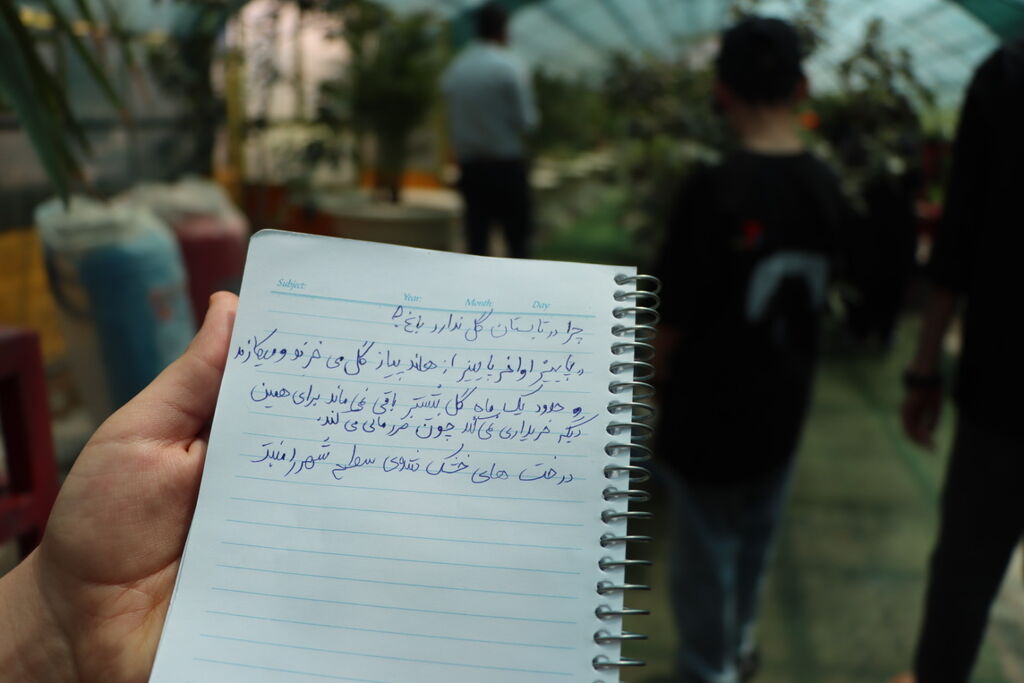 Subject:
Year: Month: Day:
چرا در تابستان گل ندارد باغ؟
در پاییز اواخر پاییز از هلند پیاز گل می خرند و میکارند
و حدود یک ماه گل بیشتر باقی نمی ماند برای همین
دیگر خریداری نمی کند چون ضرر مالی می کند.
درخت های خشک توی سطح شهر را